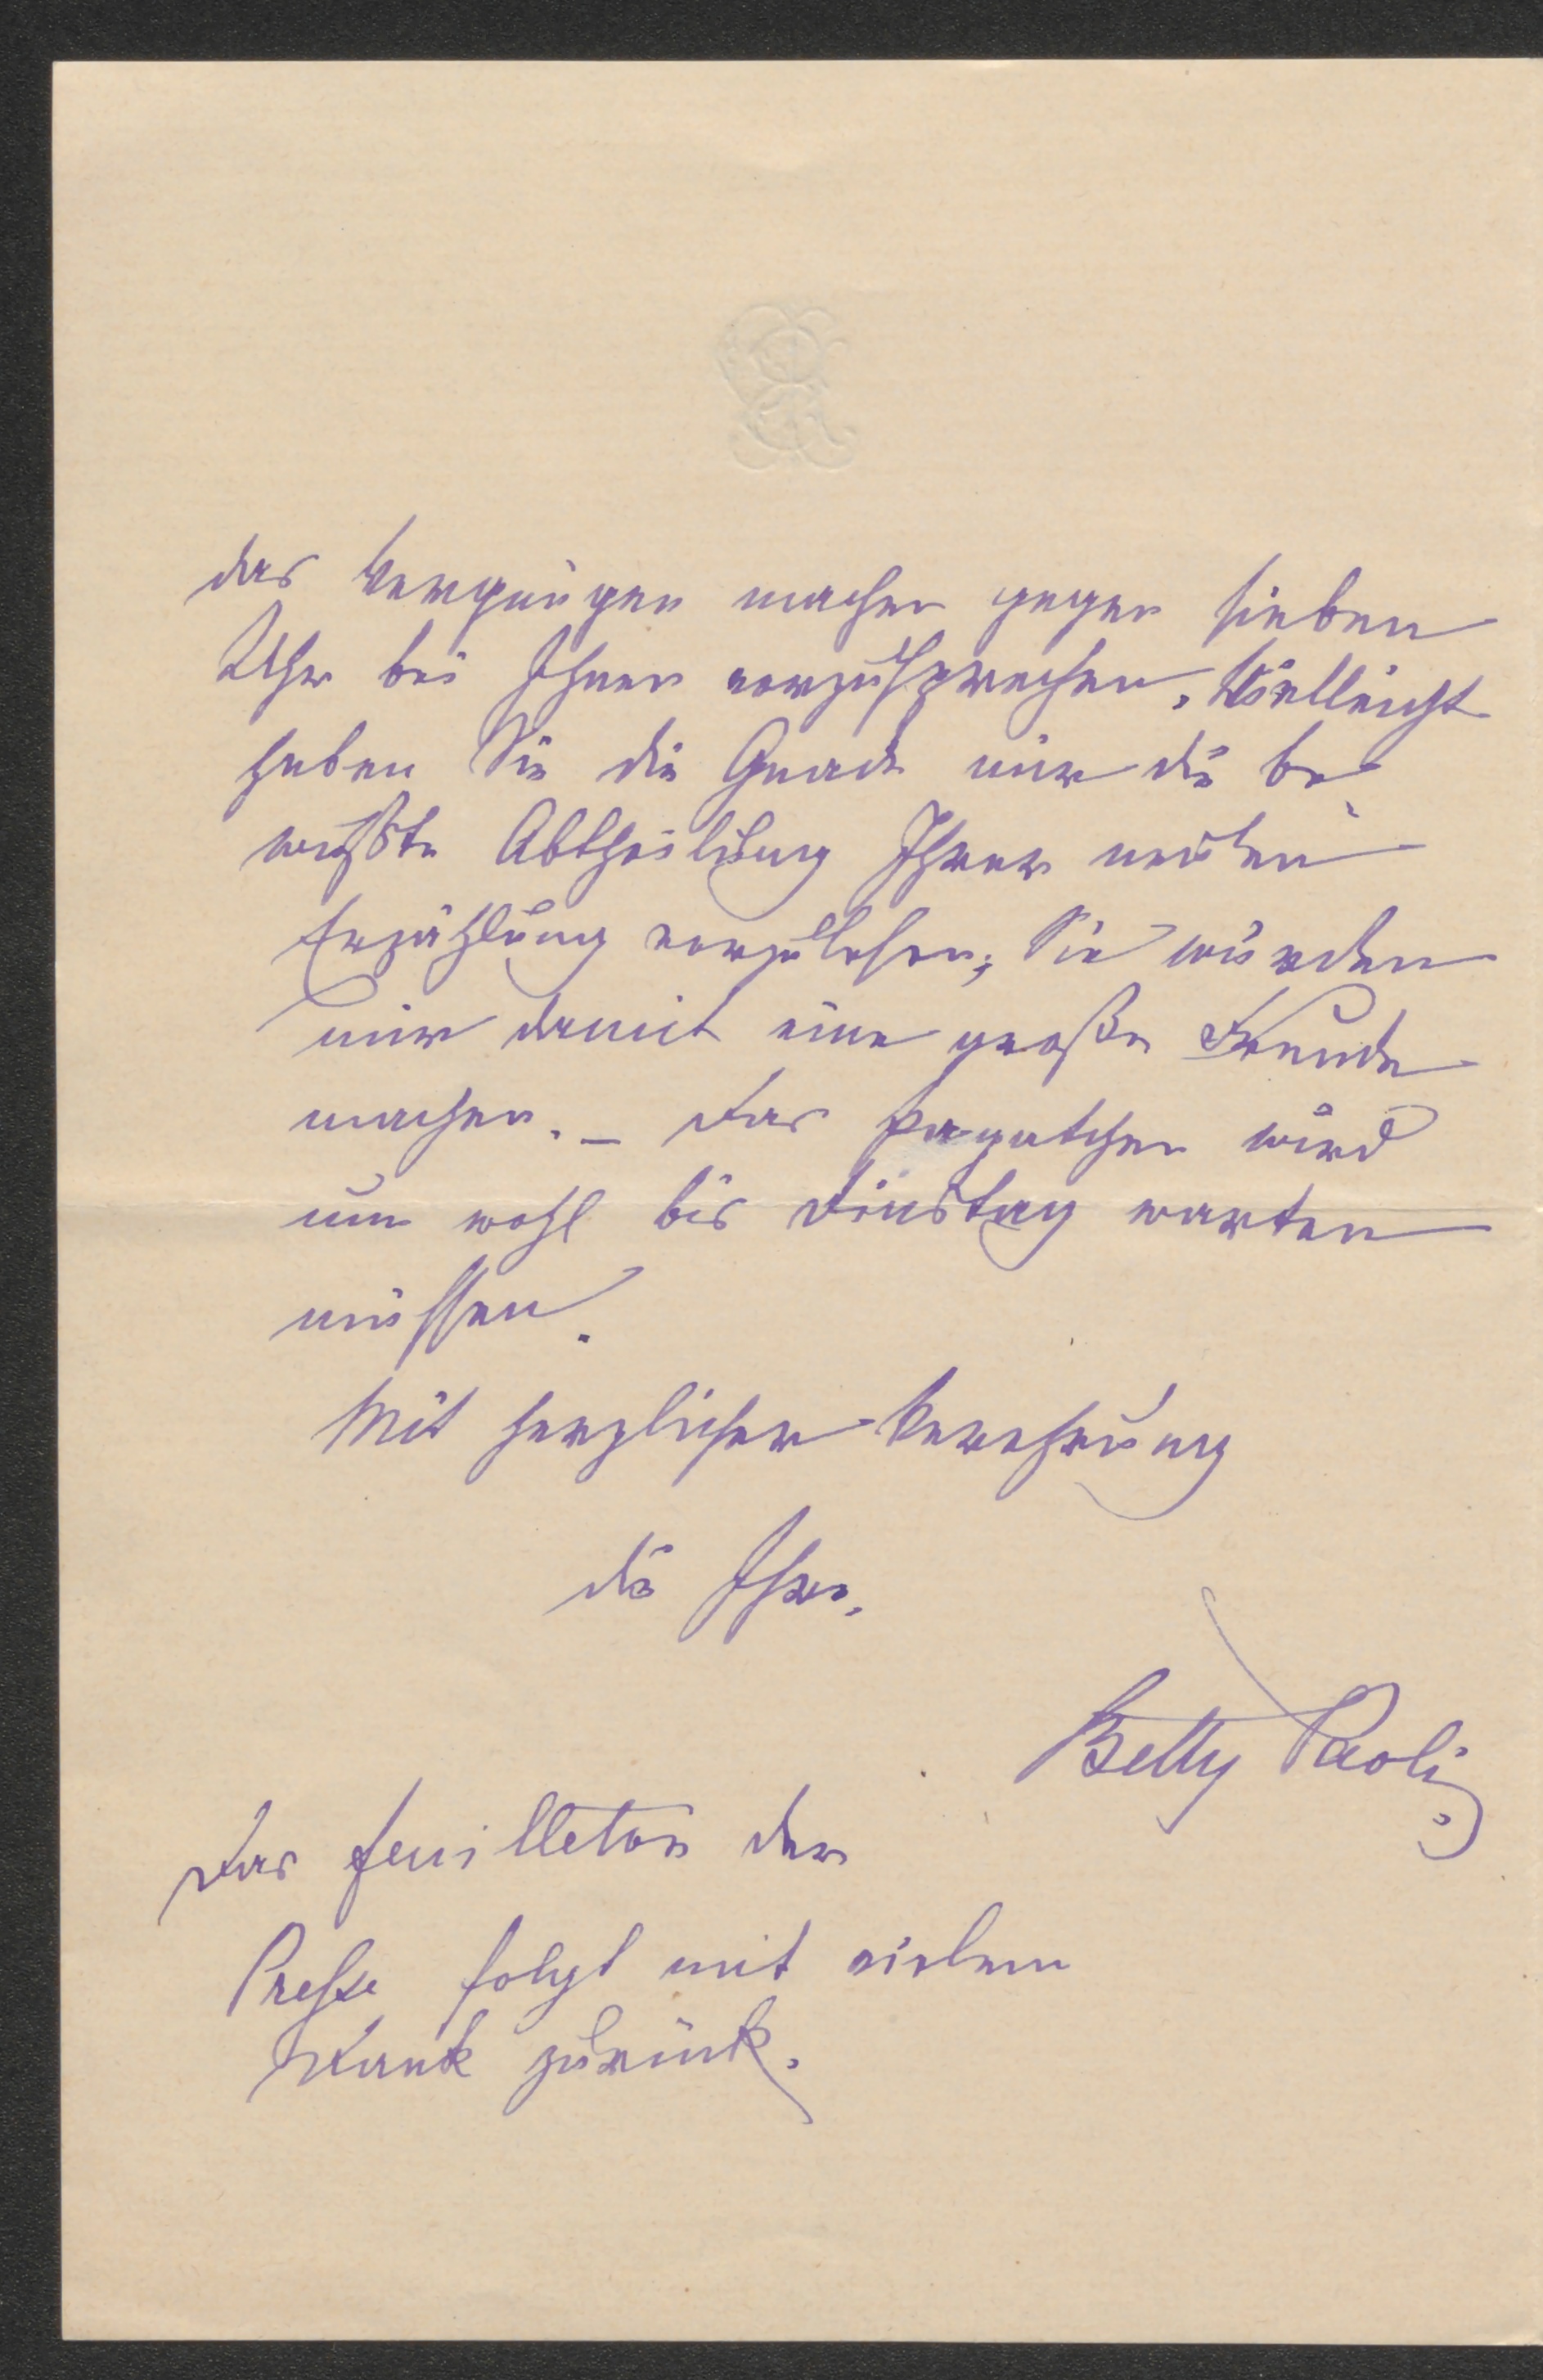 das Vergnügen machen gegen sieben
Uhr bei Ihnen vorzusprechen. Vielleicht
haben Sie die Gnade mir die be-
wußte Abtheilung Ihrer neuen
Erzählung vorzulesen; Sie würden
mir damit eine große Freude
machen. – Das Pagatchen wird
nun wohl bis Dinstag warten
müssen.
Mit herzlicher Verehrung
die Ihre.
Betty Paoli
Das Feuilleton der
Presse folgt mit vielem
Dank zurück.